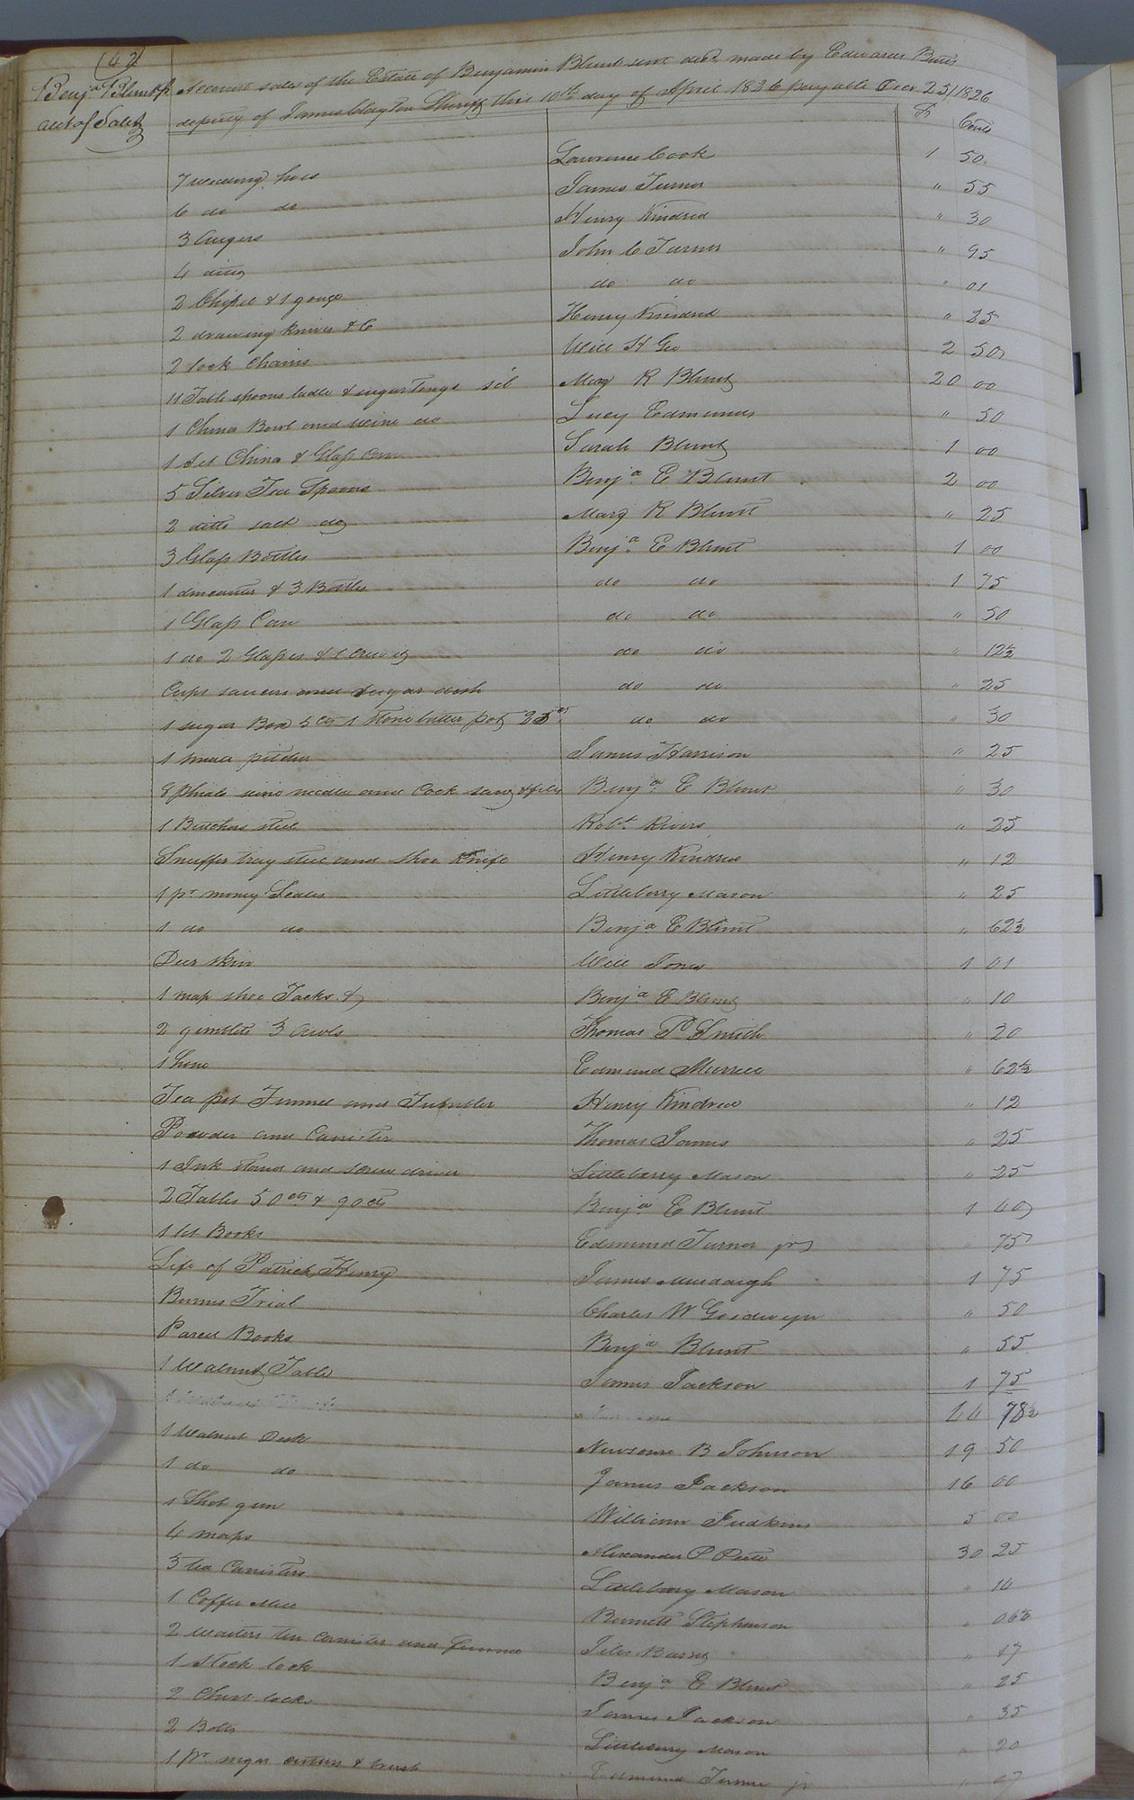 (42)
Benja Blunts Account sales of the Estate of Benjamin Blunt senr decd made by Edward Butts
acct of Sales deputy of James Clayton Sheriff this 10th day of April 1826 payable Decr 25/1826
Cents
7 weeding hoes Lawrence Cook 1 50
6 do do James Turner " 55
3 Augers Henry Kindred " 30
4 ditto John C Turner " 95
2 Chisel & 1 gouge do do " 01
2 drawing knives &C Henry Kindred " 25
2 lock chains Will H Gee 2 50
11 Table spoons ladle & sugar tongs sil Mary R Blunt 20 00
1 China Bowl and do Lucy Edmunds " 50
1 Set China & Glass Can Sarah Blunt 1 00
5 Silver Tea Spoons Benja E Blunt 2 00
2 ditto salt do Mary R Blunt " 25
3 Glass Bottles Benja E Blunt 1 00
1 decanter & 3 Bottles do do 1 75
1 Glass Can do do " 50
1 do 2 Glasses & 1 Cruet do do " 12½
Cups saucers and sugar dish do do " 25
1 sugar Box 5 cts 1 stone butter pot 25 cts do do " 30
1 small pitcher James Harrison " 25
8 phials needle and Cock & files Benja E Blunt " 30
1 Butchers steel Robt Rivers " 25
Snuffer tray steel and shoe Knife Henry Kindred " 12
1 pr money Scales Littleberry Mason " 25
1 do do Benja E Blunt " 62½
Deer skin Will Jones 1 01
1 map shoe Tacks & Benja E Blunt " 10
2 gimblets 3 Awls Thomas P Smith " 20
1 hone Edmund Murrell " 62½
Tea pot Funnel and Tumbler Henry Kindred " 12
Powder and Cannister Thomas James " 25
1 Ink stand and screw driver Littleberry Mason " 25
2 Tables 50 cts & 90 cts Benja E Blunt 1 40
1 lot Books Edmund Turner jr 75
Life of Patrick Henry James Murdaugh 1 75
Burrs Trial Charles W Goodwyn " 50
Parcel Books Benja Blunt " 55
1 Walnut Table James Jackson 1 75
44 78½
1 Walnut Desk Newsome B Johnson 19 50
1 do do James Jackson 16 00
1 Shot gun William Judkins 5 00
4 maps Alexander P Peete 30 25
3 tea Canisters Littleberry Mason " 10
1 Coffee Mill Bennett Stephenson " 06¼
2 Waiters tin canister and Giles " 17
1 Stock lock Benja E Blunt " 25
2 Chest locks James Jackson " 35
2 Bolts Littleberry Mason " 20
1 pr sugar cutters & brush Edmund Turner jr " 07